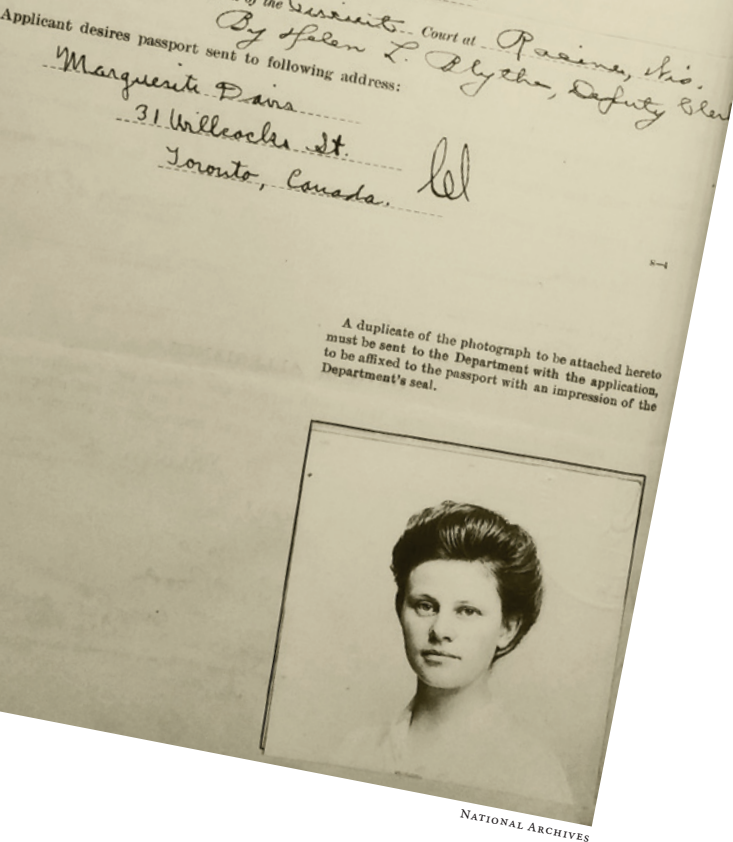 of the Circuit Court at Racine, Wis.
By Helen L. Blythe, Deputy Clerk
Applicant desires passport sent to following address:
Marguerite Davis
31 Willcocks St.
Toronto, Canada.
A duplicate of the photograph to be attached hereto
must be sent to the Department with the application,
to be affixed to the passport with an impression of the
Department's seal.
NATIONAL ARCHIVES